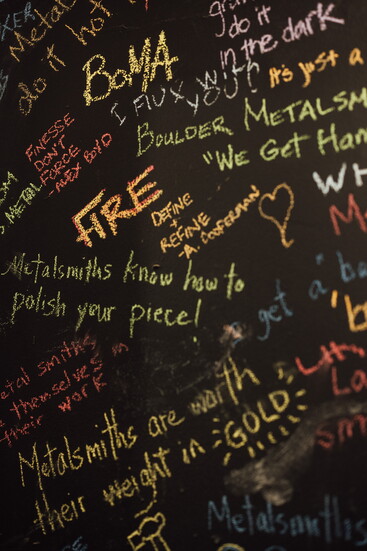 Metal
do it hot
do it
in the dark
BOMA
I FLUX WITH
YOU!
It's just a
BOULDER METALSM
"WE GET Han
FINESSE
DON'T
FORCE
-ALEX BOYD
METAL
FIRE
DEFINE
+
REFINE
-A. COOPERMAN
Metalsmiths know how to
polish your piece!
get a "be
etal smiths
themselves in
their work
Metalsmiths are worth
their weight in GOLD
Metalsmiths